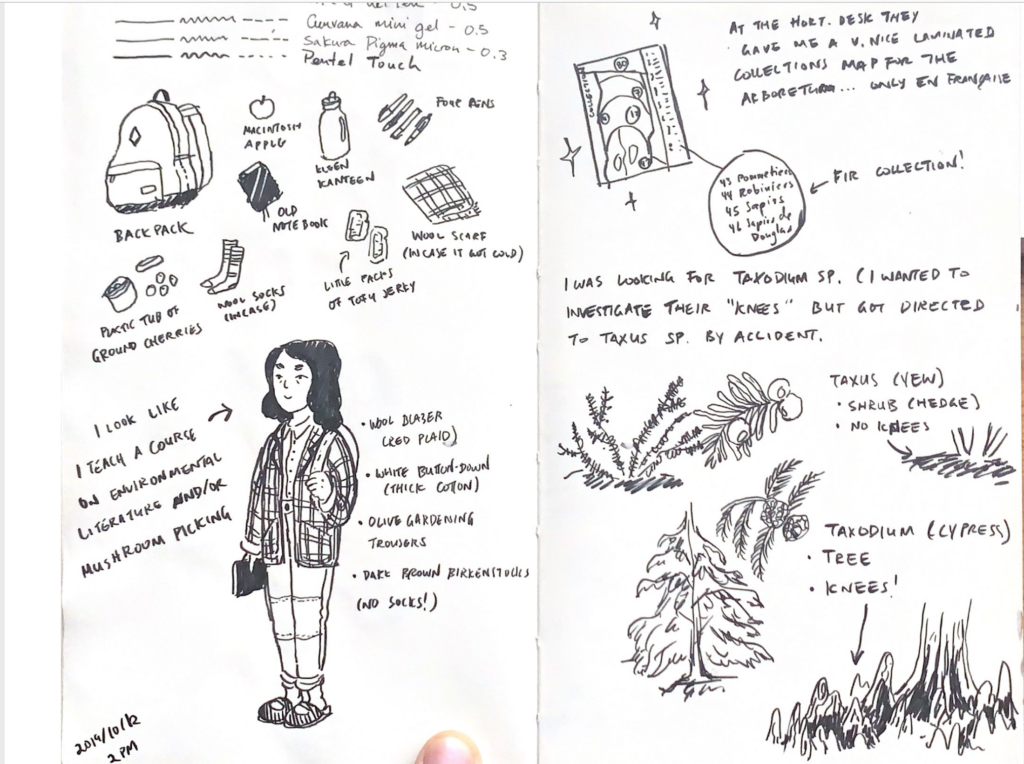 0.5
Guuvana mini gel - 0.5
Sakura Pigma micron - 0.3
Pentel Touch
MACINTOSH
APPLE
KLEEN
KANTEEN
FOUR PENS
BACKPACK
OLD
NOTEBOOK
WOOL SCARF
(IN CASE IT GOT COLD)
LITTLE PACKS
OF TOFU JERKY
WOOL SOCKS
(IN CASE)
PLASTIC TUB OF
GROUND CHERRIES
I LOOK LIKE
I TEACH A COURSE
ON ENVIRONMENTAL
LITERATURE AND/OR
MUSHROOM PICKING
• WOOL BLAZER
(RED PLAID)
• WHITE BUTTON-DOWN
(THICK COTTON)
• OLIVE GARDENING
TROUSERS
• DARK BROWN BIRKENSTOCKS
(NO SOCKS!)
2019/10/12
2 PM
AT THE HORT. DESK THEY
GAVE ME A V. NICE LAMINATED
COLLECTIONS MAP FOR THE
ARBORETUM... ONLY EN FRANÇAISE
43 Pommetiers
44 Robiniers
45 Sapins
46 Sapins de
Douglas
FIR COLLECTION!
I WAS LOOKING FOR TAXODIUM SP. (I WANTED TO
INVESTIGATE THEIR "KNEES" BUT GOT DIRECTED
TO TAXUS SP. BY ACCIDENT.
TAXUS (YEW)
• SHRUB (HEDGE)
• NO KNEES
TAXODIUM (CYPRESS)
• TREE
• KNEES!